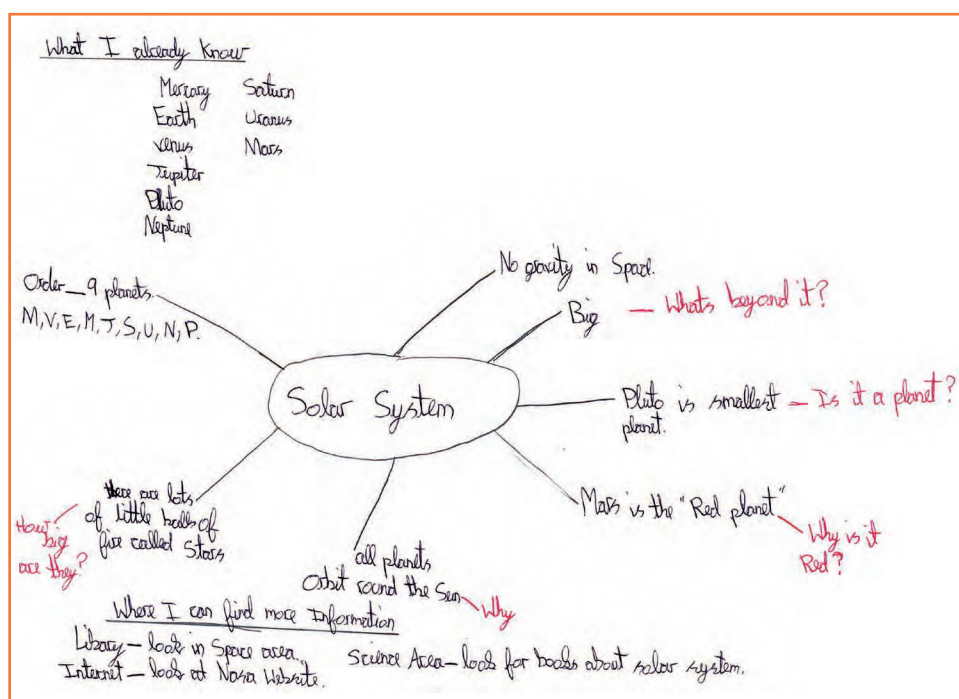 What I already know
Mercary Saturn
Earth Uranus
Venus Mars
Jupiter
Pluto
Neptune
Order_9 planets.
M,V,E,M,J,S,U,N,P.
No gravity in Space.
Big — Whats beyond it?
Solar System
Pluto is smallest — Is it a planet?
planet.
Mars is the "Red planet"
Why is it
Red?
there are lots
of little balls of
fire called Stars
How
big
are they?
all planets
Orbit round the Sun
Why
Where I can find more Information
Libary — look in Space area.
Internet — look at Nasa Website.
Science Area — look for books about solar system.